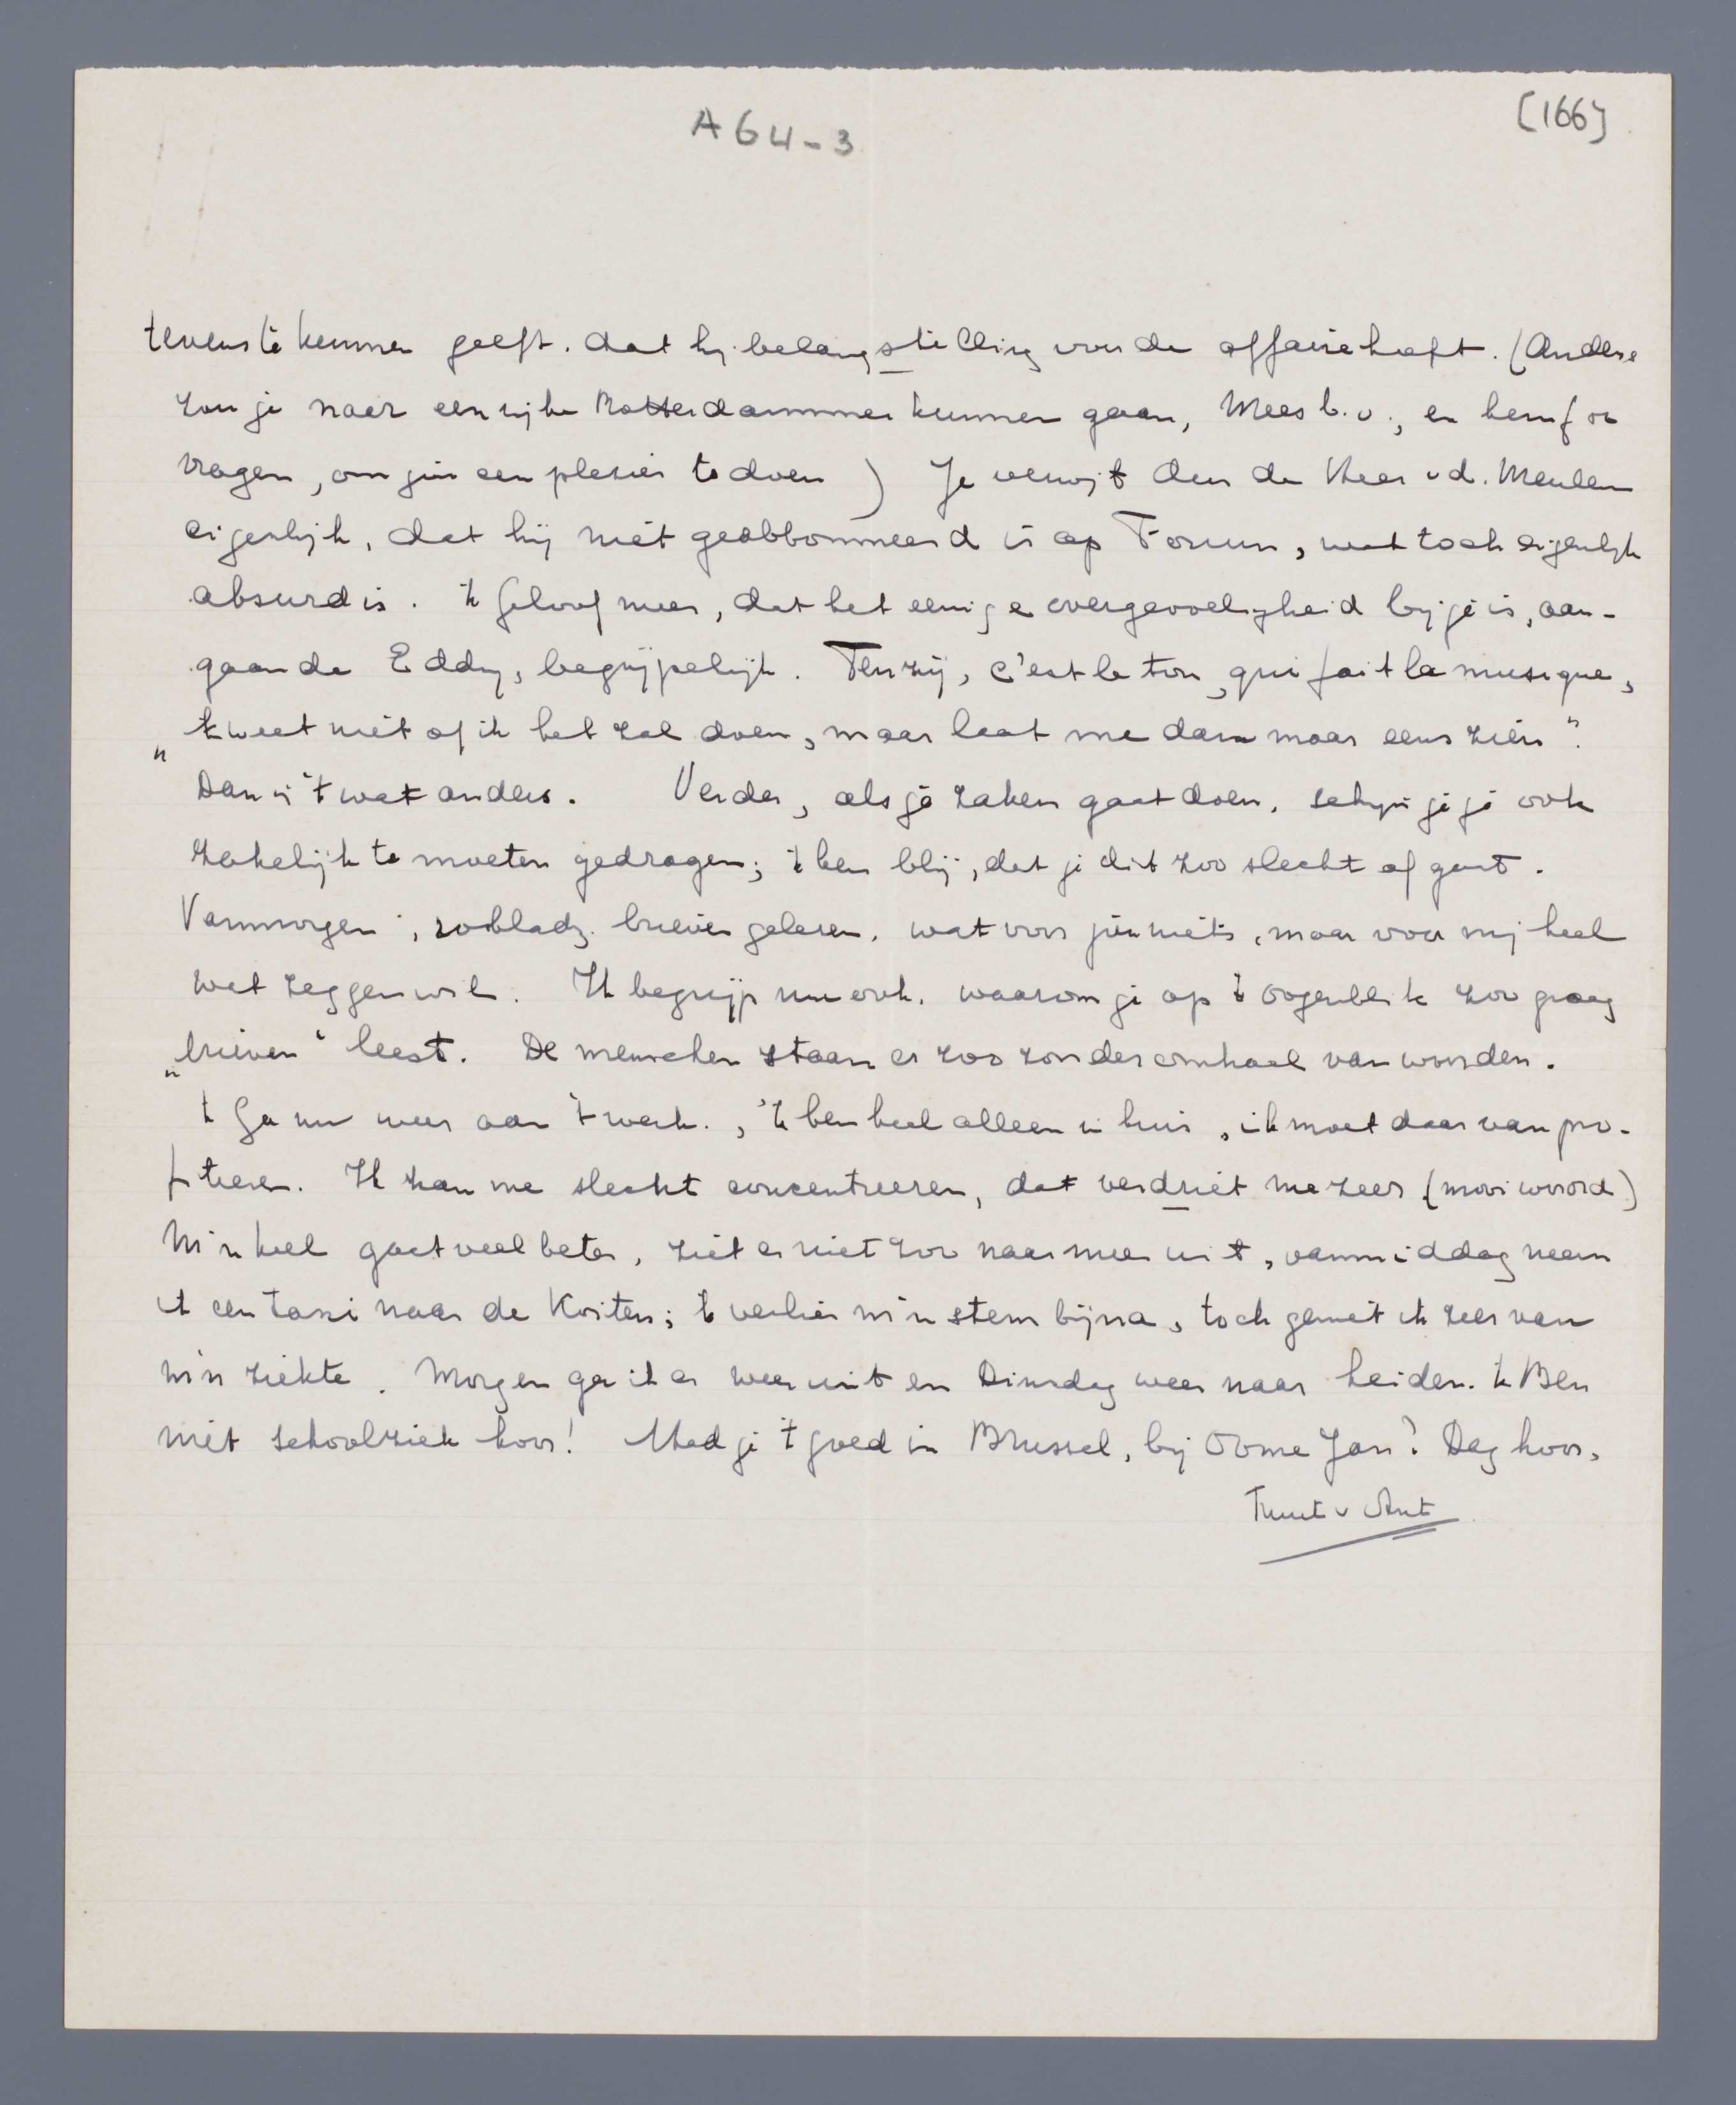 A64-3
[166]
tevens te kennen geeft. dat hij belangstelling voor de affaire heeft. (Anders
zou je naar een rijke Rotterdammer kunnen gaan, Mees b.v., en hem f
vragen, om jou een plezier te doen) Je verwijt dus de Heer v d. Meulen
eigenlijk, dat hij niet geabbonneerd is op Forum, wat toch eigenlijk
absurd is. 'k Geloof meer, dat het eenige overgevoeligheid bij je is, aan-
gaande Eddy, begrijpelijk. Tenzij, c'est le ton, qui fait la musique,
„'k weet niet of ik het zal doen, maar laat me dan maar eens zien".
Dan is 't wat anders. Verder, als je zaken gaat doen, schijn je je ook
zakelijk te moeten gedragen; 'k ben blij, dat je dit zoo slecht af gaat.
Vanmorgen, bladz. brieven gelezen, wat voor jou niets, maar voor mij heel
wat zeggen wil. Ik begrijp nu ook, waarom je op 't oogenblik zoo graag
„brieven" leest. De menschen staan er zoo zonder omhaal van woorden.
'k Ga nu weer aan 't werk., 'k ben heel alleen in huis, ik moet daar van pro-
fiteren. Ik kan me slecht concentreeren, dat verdriet me zeer (mooi woord)
M'n keel gaat veel beter, ziet er niet zoo naar meer uit, vanmiddag neem
ik een taxi naar de Kosten; 'k verlies m'n stem bijna, toch geniet ik zeer van
m'n ziekte. Morgen ga ik er weer uit en Dinsdag weer naar Leiden. 'k Ben
niet schoolziek hoor! Had je 't goed in Brussel, bij Oome Jan? Dag hoor,
Truut v Ant